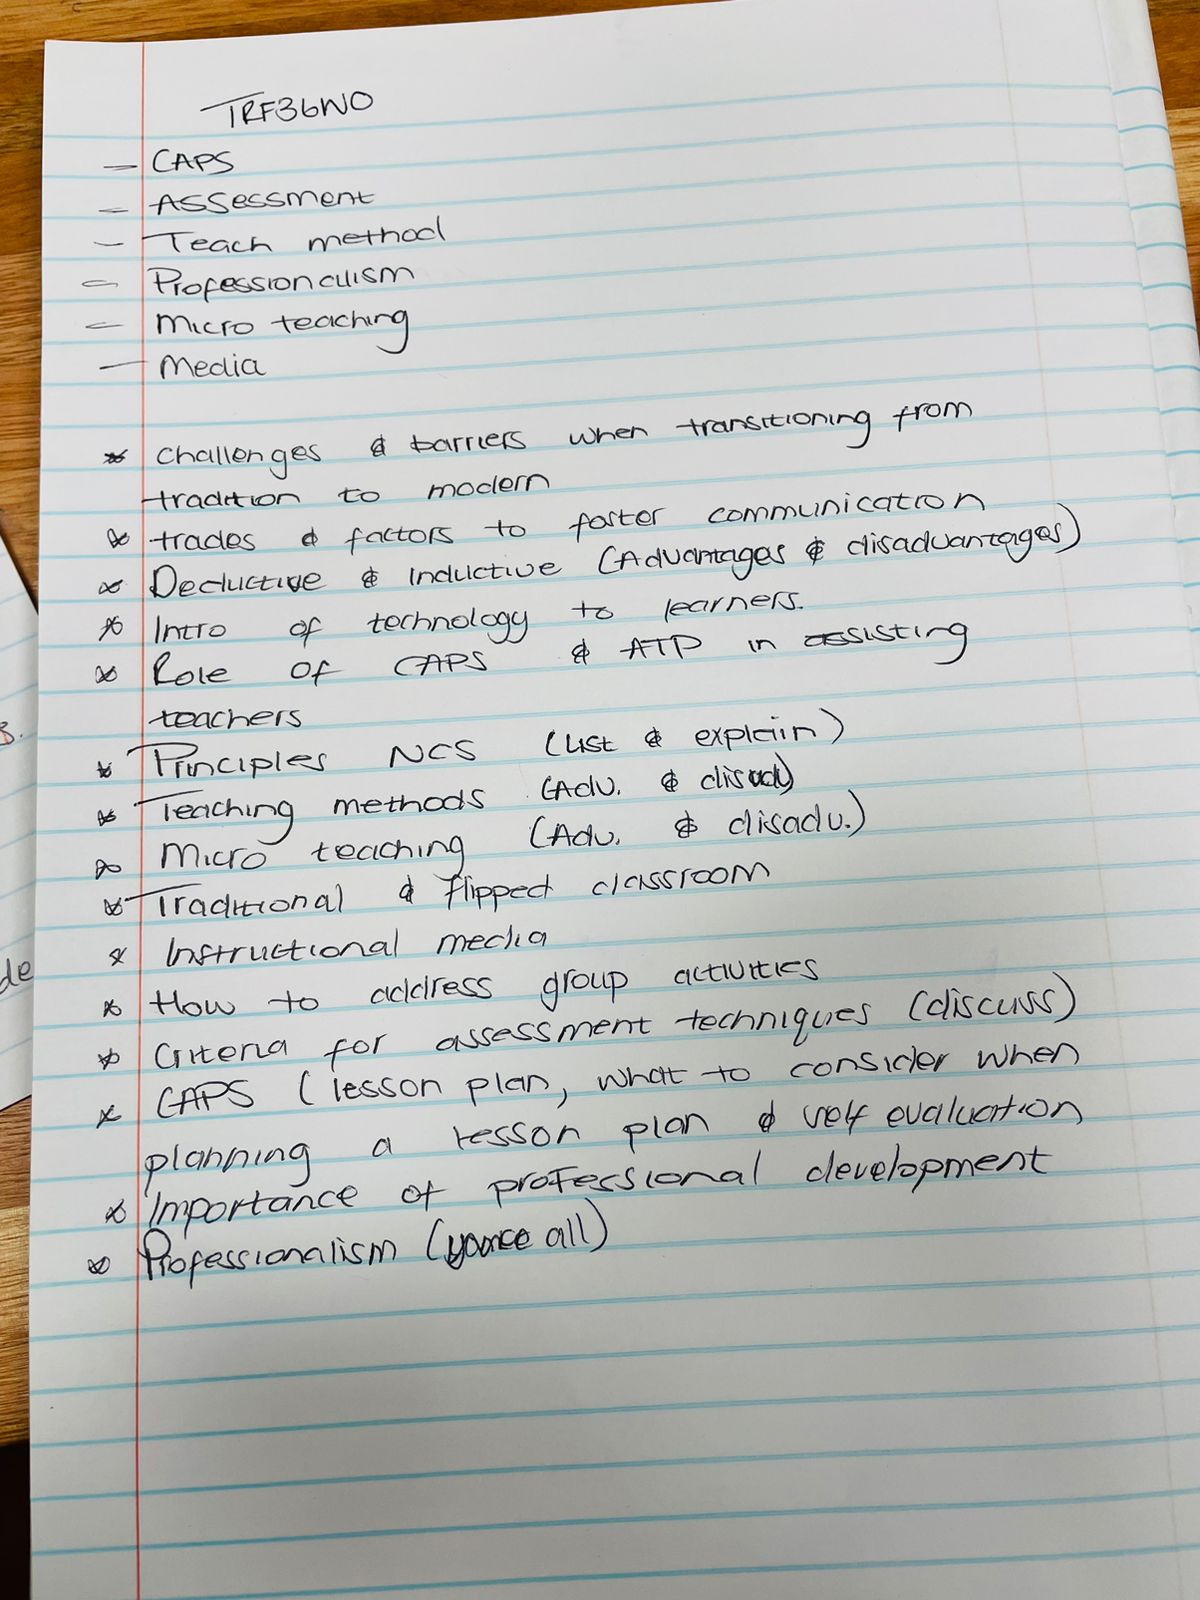 TRF36WO
- CAPS
- Assessment
- Teach method
- Professionalism
- Micro teaching
- Media
* challenges & barriers when transitioning from
tradition to modern
* trades & factors to foster communication
* Deductive & Inductive (Advantages & disadvantages)
* Intro of technology to learners.
* Role of CAPS & ATP in assisting
teachers
* Principles NCS (list & explain)
* Teaching methods (Adv. & disad)
* Micro teaching (Adv. & disadv.)
* Traditional & flipped classroom
* Instructional media
* How to address group activities
* Criteria for assessment techniques (discuss)
* CAPS (lesson plan, what to consider when
planning a lesson plan & self evaluation
* Importance of professional development
* Professionalism ( all)
B.
de